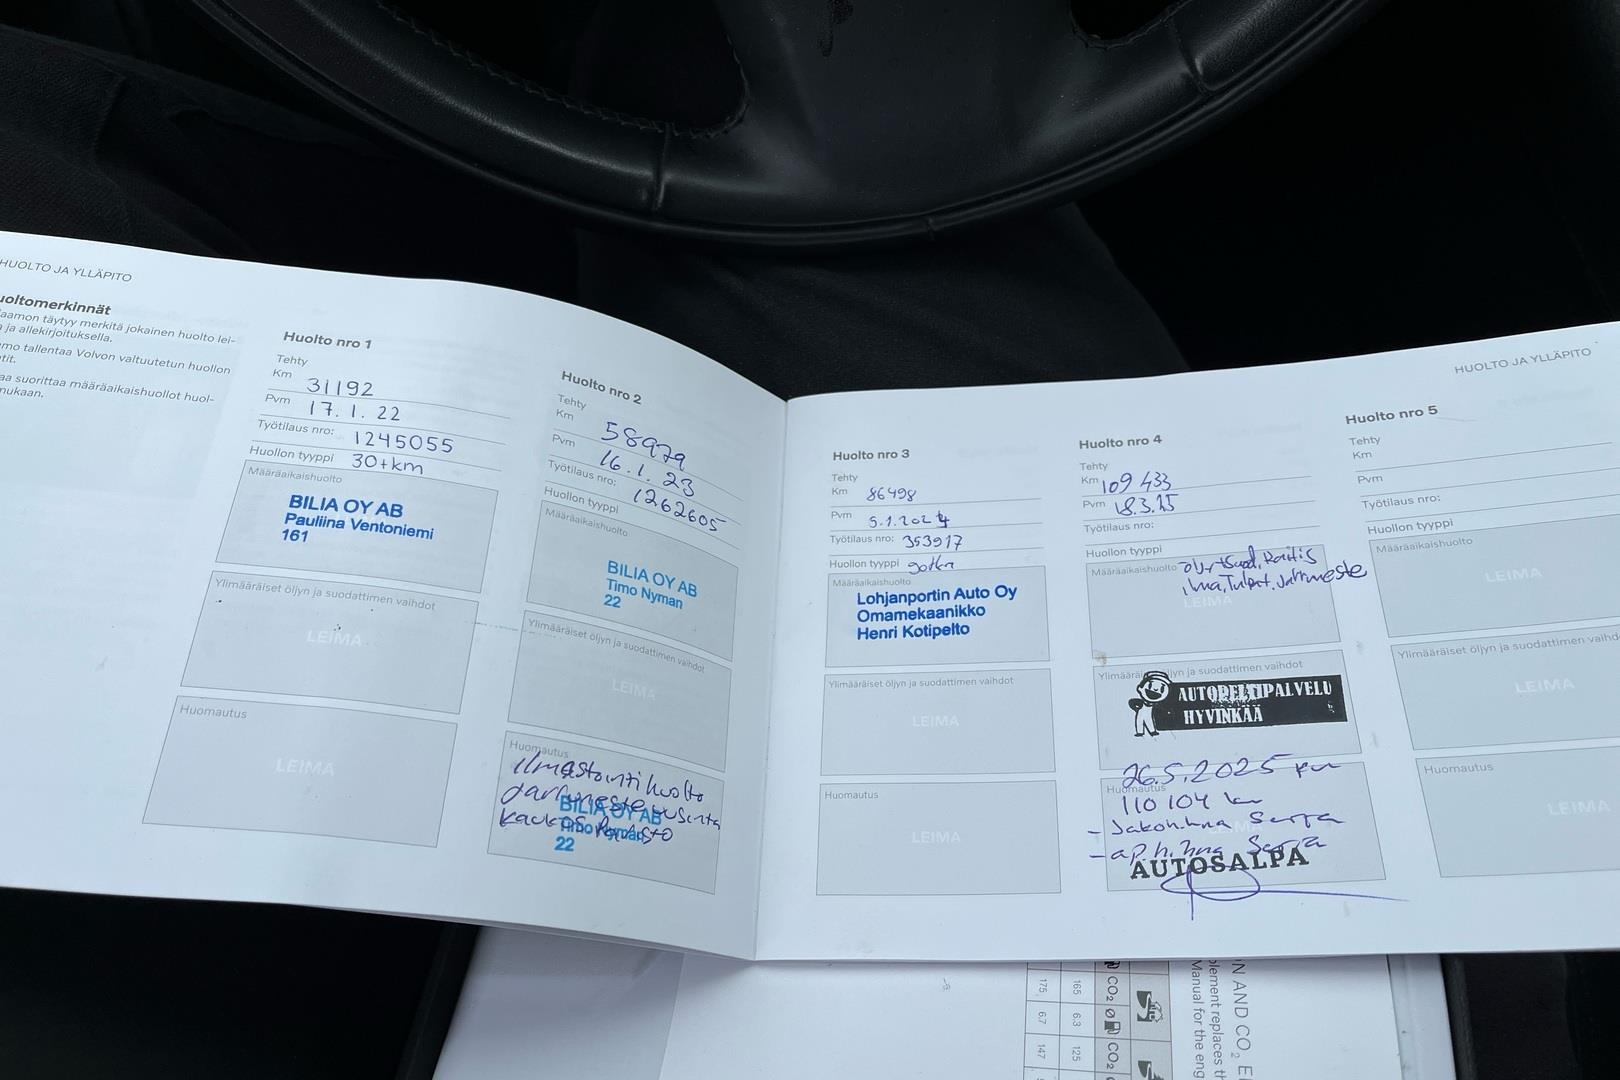 HUOLTO JA YLLÄPITO
uoltomerkinnät
aamon täytyy merkitä jokainen huolto lei-
a ja allekirjoituksella.
mo tallentaa Volvon valtuutetun huollon
tit.
aa suorittaa määräaikaishuollot huol-
mukaan.
Huolto nro 1
Tehty
Km 31192
Pvm 17.1.22
Työtilaus nro: 1245055
Huollon tyyppi 30+km
Määräaikaishuolto
BILIA OY AB
Pauliina Ventoniemi
161
Ylimääräiset öljyn ja suodattimen vaihdot
LEIMA
Huomautus
LEIMA
Huolto nro 2
Tehty
Km 58979
Pvm 16.1.23
Työtilaus nro: 1262605
Huollon tyyppi
Määräaikaishuolto
BILIA OY AB
Timo Nyman
22
Ylimääräiset öljyn ja suodattimen vaihdot
LEIMA
Huomautus
ilmastointihuolto
jarruneste uusinta
BILIA OY AB
Timo Nyman
22
HUOLTO JA YLLÄPITO
Huolto nro 3
Tehty
Km 86498
Pvm 5.1.2024
Työtilaus nro: 353917
Huollon tyyppi
Määräaikaishuolto
Lohjanportin Auto Oy
Omamekaanikko
Henri Kotipelto
Ylimääräiset öljyn ja suodattimen vaihdot
LEIMA
Huomautus
LEIMA
Huolto nro 4
Tehty
Km 109 433
Pvm 18.3.25
Työtilaus nro:
Huollon tyyppi
Määräaikaishuolto
ilma, Tulpat, Jarruneste
LEIMA
Ylimääräiset öljyn ja suodattimen vaihdot
AUTOPELTIPALVELU
HYVINKÄÄ
26.5.2025
Huomautus
110 104 km
- Jakoh.hna Sarja
- ap.h.hna Sarja
AUTOSALPA
Huolto nro 5
Tehty
Km
Pvm
Työtilaus nro:
Huollon tyyppi
Määräaikaishuolto
LEIMA
Ylimääräiset öljyn ja suodattimen vaihd
LEIMA
Huomautus
LEIMA
N AND CO₂ E
plement replaces th
Manual for the eng
CO₂
165
175
6.3
6.7
CO₂
125
147